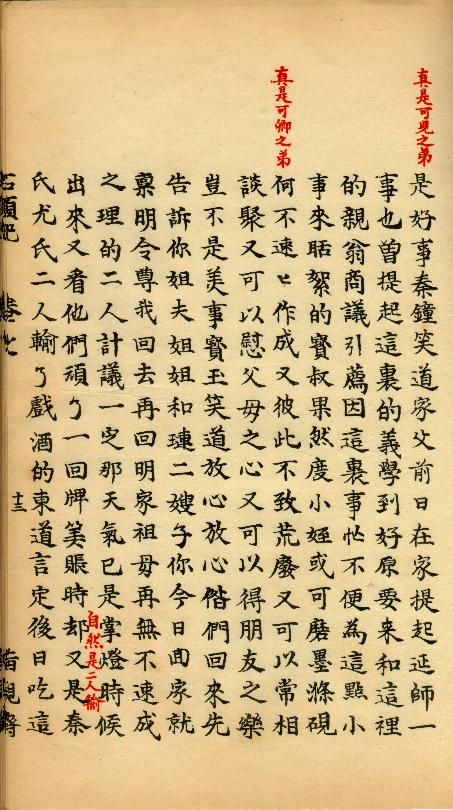 真是可兒之弟
是好事秦鐘笑道家父前日在家提起延師一
事也曾提起這裏的義學到好原要来和這裡
的親翁商議引薦因這裏事忙不便為這點小
事来聒絮的寳叔果然度小姪或可磨墨滌硯
真是可卿之弟
何不速〻作成又彼此不致荒廢又可以常相
談聚又可以慰父母之心又可以得朋友之樂
豈不是美事寳玉笑道放心放心偺們回来先
告訴你姐夫姐姐和璉二嫂子你今日回家就
禀明令尊我回去再回明家祖母再無不速成
之理的二人計議一定那天氣已是掌燈時候
自然是二人輸
出来又看他們頑了一回牌筭賬時却又是秦
氏尤氏二人輸了戲酒的東道言定後日吃這
石頭記 卷七 十三 脂硯齋